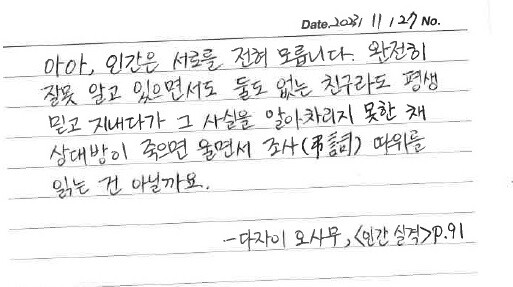 Date. 2023 / 11 / 27 No.
아아, 인간은 서로를 전혀 모릅니다. 완전히
잘못 알고 있으면서도 둘도 없는 친구라도 평생
믿고 지내다가 그 사실을 알아차리지 못한 채
상대방이 죽으면 울면서 조사(弔詞) 따위를
읽는 건 아닐까요.
-다자이 오사무, <인간 실격> p.91